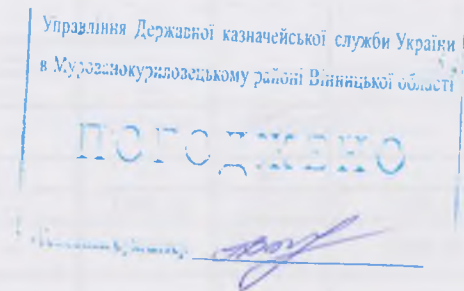 Управління Державної казначейської служби України
в Мурованокуриловецькому районі Вінницької області
ПОГОДЖЕНО